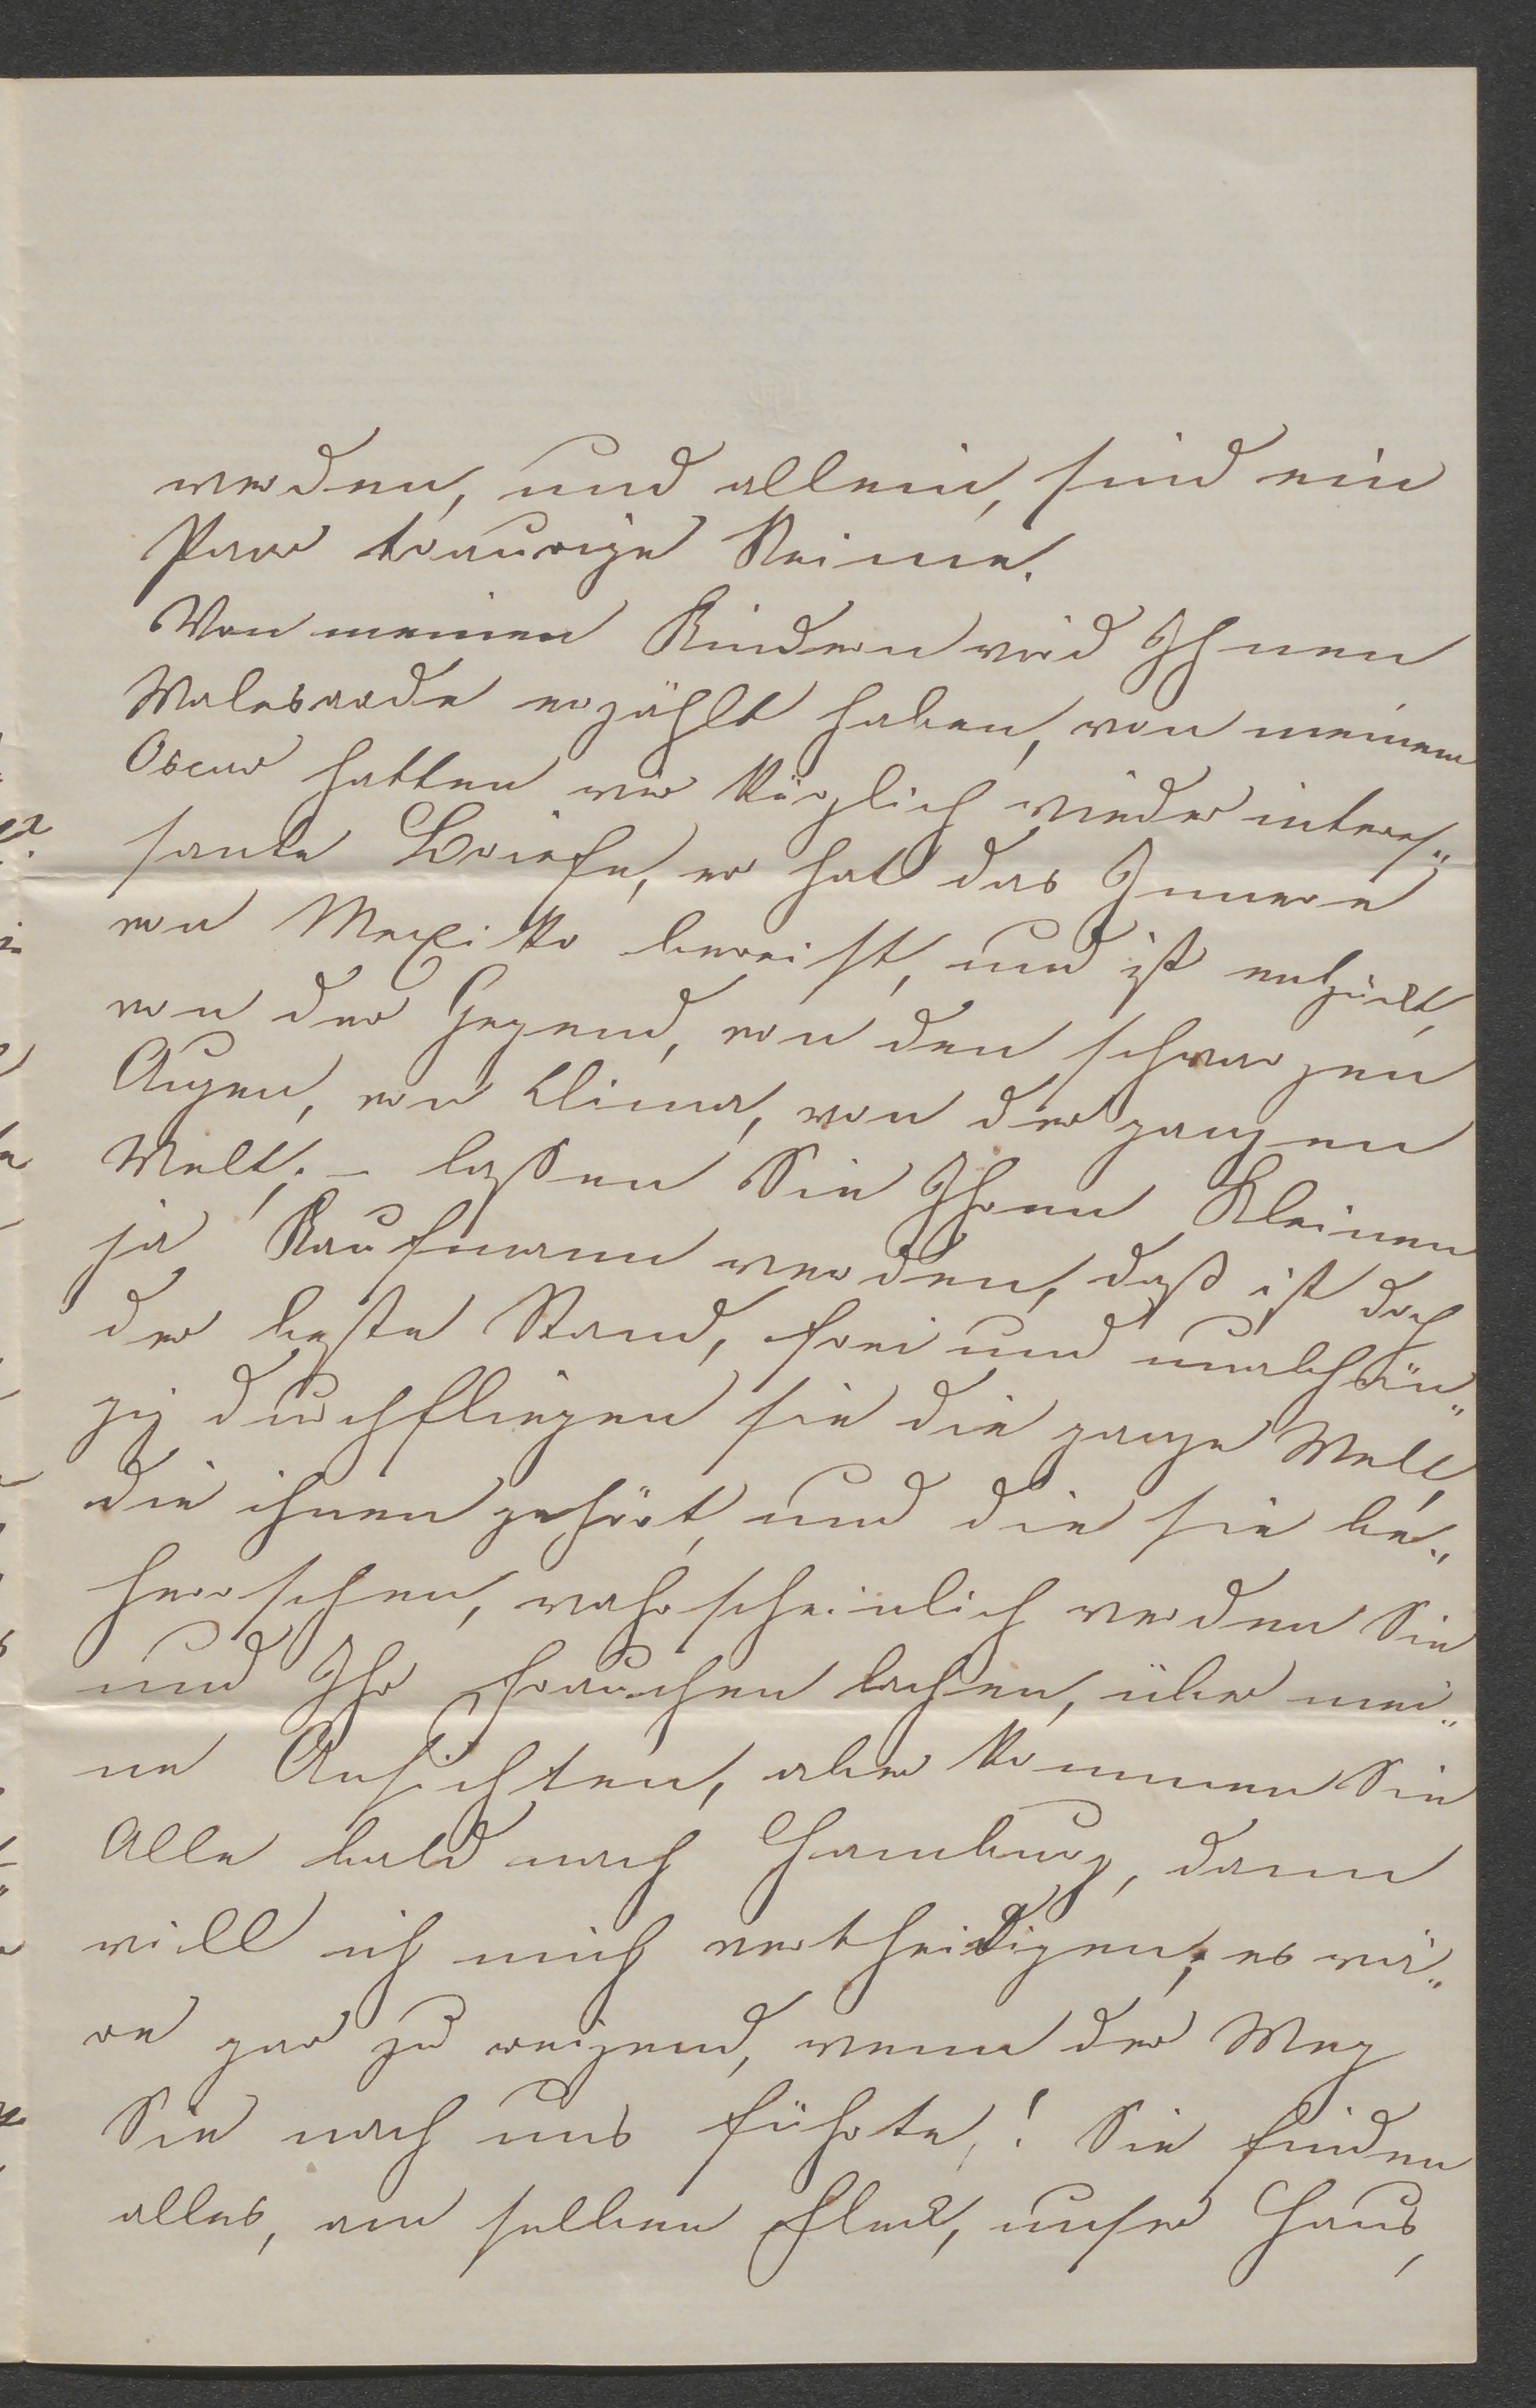 werden, und allein, sind ein
Paar traurige Reime.
Von meinen Kindern wird Ihnen
Walesrode erzählt haben, von meinem
Oscar hatten wir kürzlich wieder interes-
sante Briefe, er hat das Innere
von Mexiko bereist, und ist entzückt,
von der Gegend, von den schwarzen
Augen, von Clima, von der ganzen
Welt; – laßen Sie Ihren Kleinen
ja Kaufmann werden, daß ist doch
der beste Stand, frei und unabhän-
gig durchfliegen sie die ganze Welt,
die ihnen gehört, und die sie be-
herrschen, wahrscheinlich werden Sie
und Ihr Frauchen lachen, über mei-
ne Ansichten, aber kommen Sie
Alle bald nach Hamburg, dann
will ich mich vertheidigen; es wä-
re gar zu reizend, wenn der Weg
Sie nach uns führte,! Sie finden
alles, am selben Fleck, unser Haus,